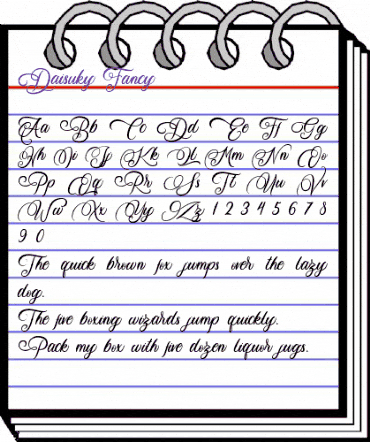 Daisuky Fancy
Aa Bb Cc Dd Ee Ff Gg
Hh Ii Jj Kk Ll Mm Nn Oo
Pp Qq Rr Ss Tt Uu Vv
Ww Xx Yy Zz 1 2 3 4 5 6 7 8
9 0
The quick brown fox jumps over the lazy
dog.
The five boxing wizards jump quickly.
Pack my box with five dozen liquor jugs.